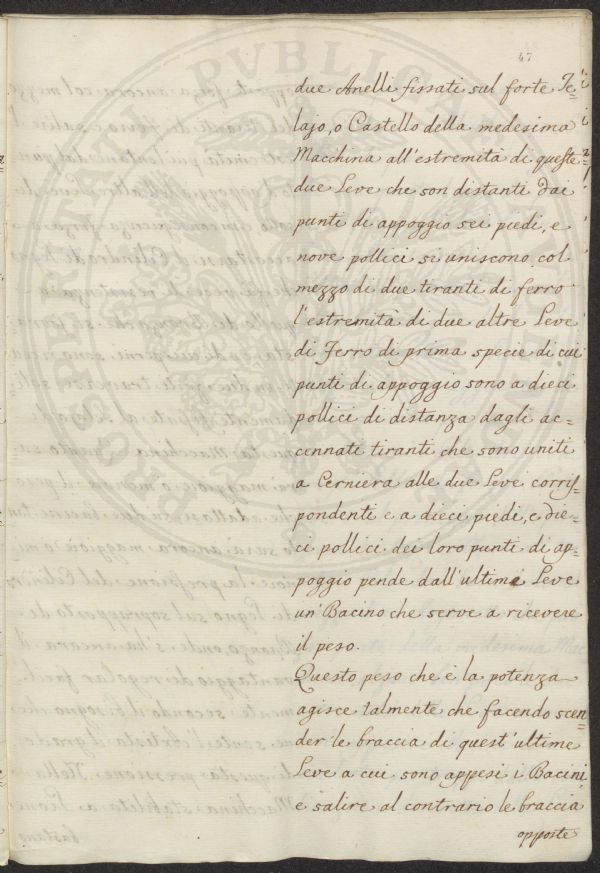 47
due Anelli fissati sul forte Te=
lajo, o Castello della medesima
Macchina all'estremità di queste
due Leve che son distanti dai
punti di appoggio sei piedi, e
nove pollici si uniscono col
mezzo di due tiranti di ferro
l'estremità di due altre Leve
di Ferro di prima specie di cui
punti di appoggio sono a dieci
pollici di distanza dagli ac=
cennati tiranti che sono uniti
a Cerniera alle due Leve corris=
pondenti e a dieci piedi, e die=
ci pollici dei loro punti di ap=
poggio pende dall'ultime Leve
un' Bacino che serve a ricevere
il peso.
Questo peso che è la potenza
agisce talmente che facendo scen=
der le braccia di quest'ultime
Leve a cui sono appesi i Bacini,
e salire al contrario le braccia
opposte